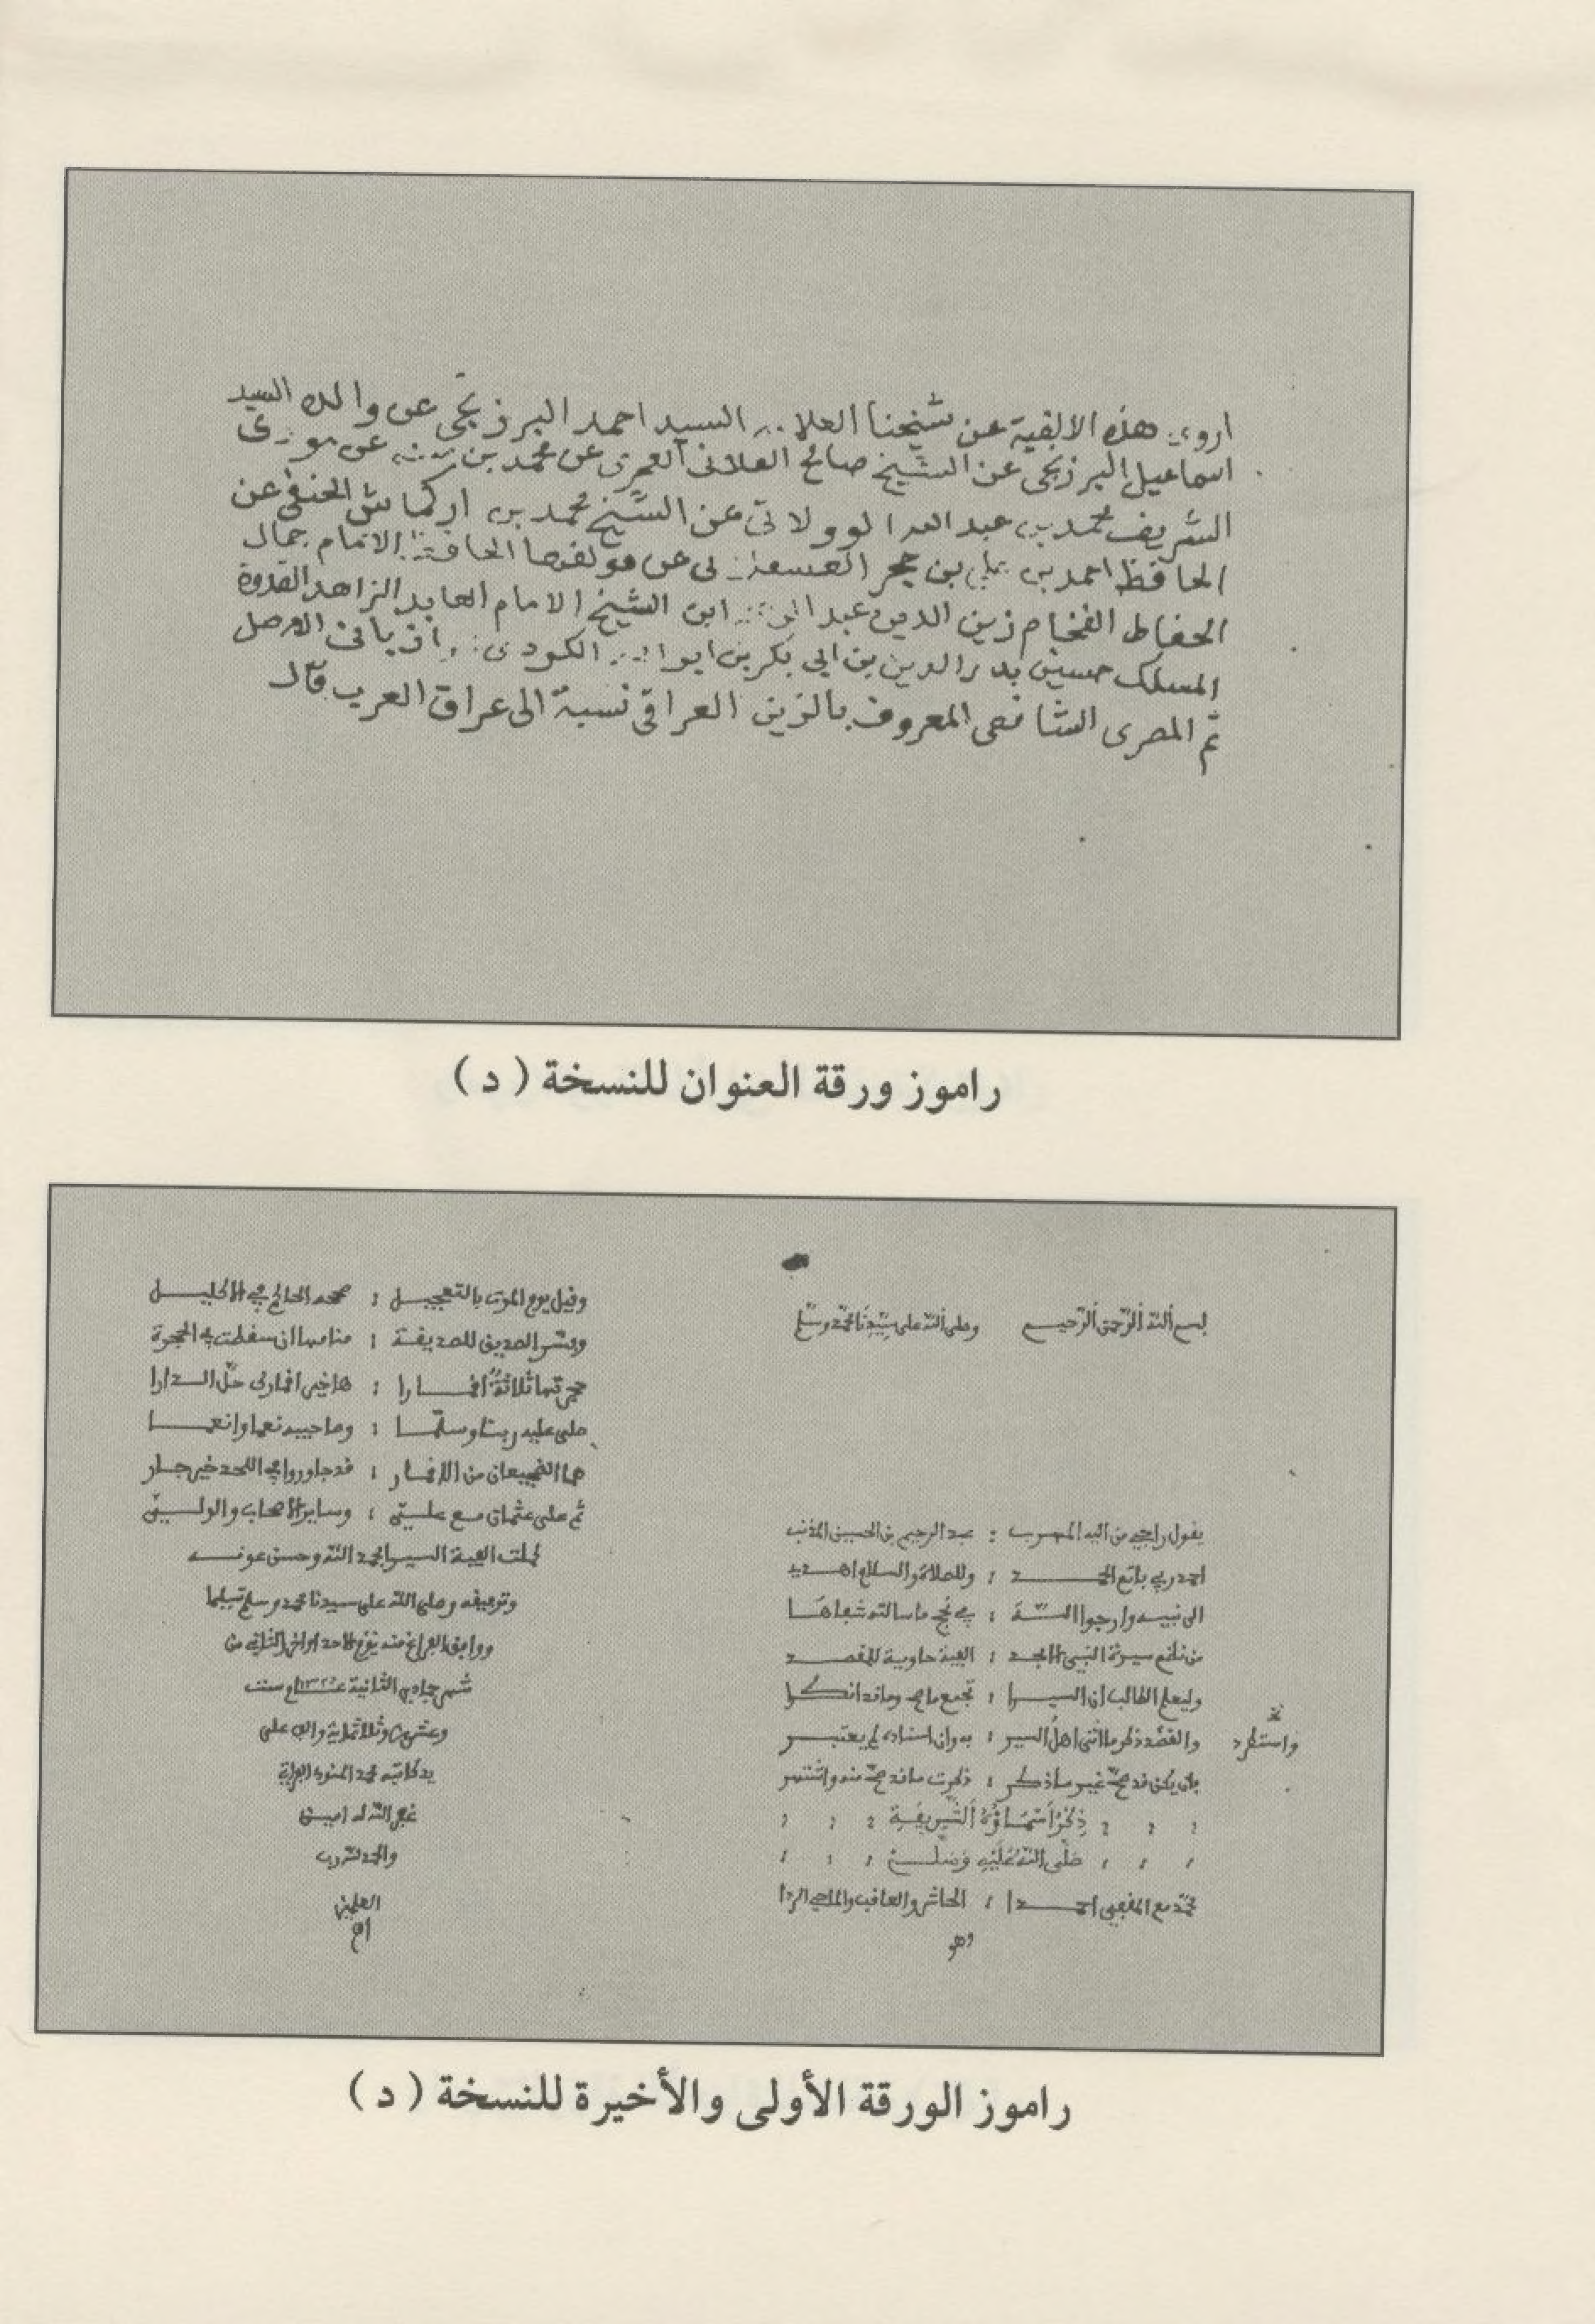 اروي هذه الالفية عن شيخنا السيد احمد البرزنجي عن والده السيد
اسماعيل البرزنجي عن الشيخ صالح الفلاني العمري عن محمد بن سنه عن مولاي
الشريف محمد بن عبد الله الوولاتي عن الشيخ محمد بن اركماش الحنفي عن
الحافظ احمد بن علي بن حجر العسقلاني عن مولفها الحافظ الامام جمال
الحفاظ الفخام زين الدين عبد ابن الشيخ الامام العابد الزاهد القدوة
المسلك حسين بدر الدين بن ابي بكر بن الكردي الاصل
ثم المصرى الشافعى المعروف بالزين العراقي نسبة الى عراق العرب قال
راموز ورقة العنوان للنسخة ( د )
بسم الله الرحمن الرحيم وصلى الله على سيدنا محمد وسلم
يقول راجي من اليه المهرب : عبد الرحيم بن الحسين المذنب
احمد ربي باتم الحمد : وللصلاة والسلام اهدي
الى نبيه وارجوا الله : في نجح ما سالته شفاها
من نظم سيرة النبي الامجد : الفية حاوية للمقصد
وليعلم الطالب ان السيرا : تجمع ما صح وما قد انكرا
والقصد ذكر ما اتى اهل السير : به وان اسناده لم يعتبر
واستطرد
فان يكن قد صح غير ما ذكر : ذكرت ما قد صح منه واشتهر
ذكر اسماؤه الشريفة
صلى الله عليه وسلم
محمد مع المقفي احمدا : الحاشر والعاقب والماحي الردا
وهو
وقيل يوم الموت بالتعجيل : صححه الحاكم في الاكليل
وبشر الصديق للصديقة : مناما ان سقطت في الحجرة
حجرتها ثلاثة اقمارا : ها خير اقمارك حل الدارا
صلى عليه ربنا وسلما : وصاحبيه نعما وانعما
هما الضجيعان من الاقمار : قد جاوروا في اللحد خير جار
ثم على عثمان مع علي : وساير الاصحاب والولي
كملت الفية السير بحمد الله وحسن عونه
وتوفيقه وصلى الله على سيدنا محمد وسلم تسليما
ووافق الفراغ منه يوم الاحد الثاني من
شهر جمادى الثانية عام ست
وعشرين وثلاثماية والف على
يد كاتبه محمد
غفر الله له امين
والحمد لله رب
العلمين
اه
راموز الورقة الأولى والأخيرة للنسخة ( د )